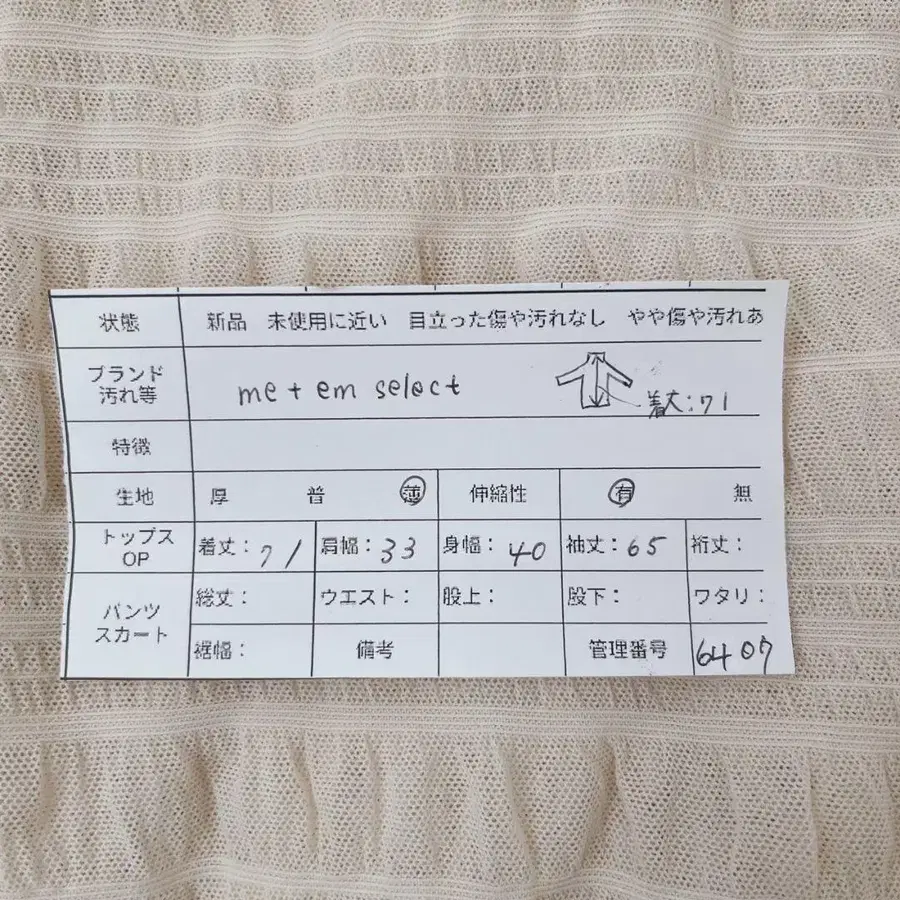 状態 新品 未使用に近い 目立った傷や汚れなし やや傷や汚れあ
ブランド
汚れ等 me+em select 着丈:71
特徴
生地 厚 普 薄 伸縮性 有 無
トップス
OP 着丈:71 肩幅:33 身幅:40 袖丈:65 裄丈:
パンツ
スカート 総丈: ウエスト: 股上: 股下: ワタリ:
裾幅: 備考 管理番号 6407